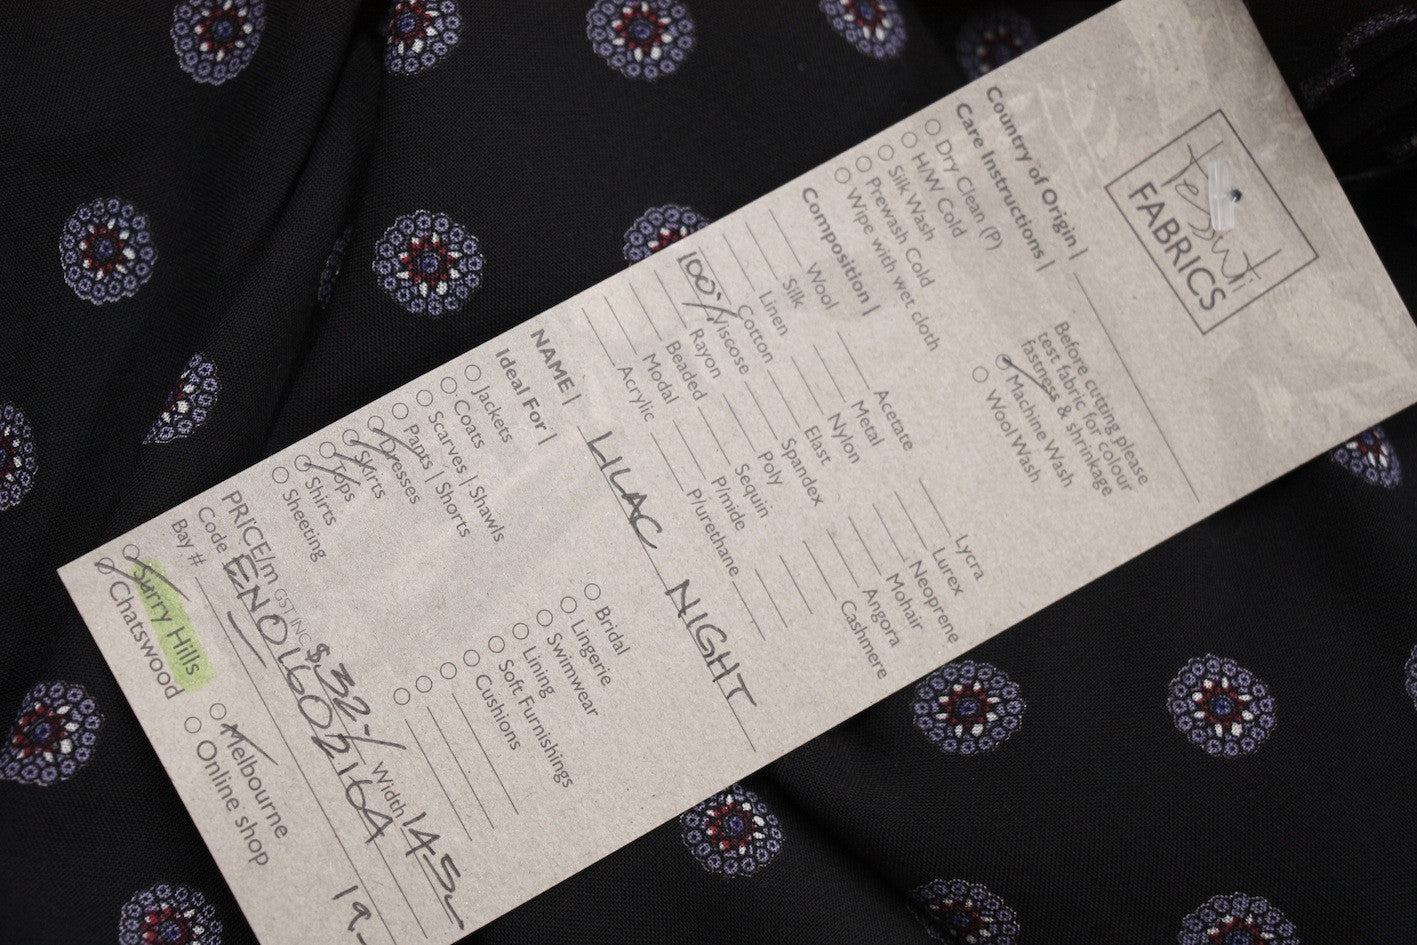 Tessuti
FABRICS
Country of Origin |
Care Instructions |
Dry Clean (P)
H/W Cold
Silk Wash
Prewash Cold
Wipe with wet cloth
Before cutting please
test fabric for colour
fastness & shrinkage
Machine Wash
Wool Wash
Composition |
Wool Acetate Lycra
Silk Metal Lurex
Linen Nylon Neoprene
Cotton Elast Mohair
100% Viscose Spandex Angora
Rayon Poly Cashmere
Beaded Sequin
Modal P/mide
Acrylic P/urethane
NAME | LILAC NIGHT
Ideal For |
Jackets Bridal
Coats Lingerie
Scarves | Shawls Swimwear
Pants | Shorts Lining
Dresses Soft Furnishings
Skirts Cushions
Tops
Shirts
Sheeting
PRICE/m GST INC $32-/ Width 145
Code EN01602164
Bay # 19
Surry Hills Melbourne
Chatswood Online shop